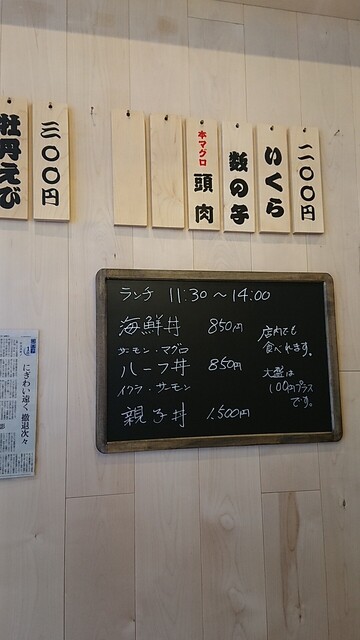 二〇〇円
いくら
数の子
本マグロ
頭肉
三〇〇円
牡丹えび
ランチ 11:30~14:00
海鮮丼 850円
サーモン・マグロ
ハーフ丼 850円
イクラ・サーモン
親子丼 1,500円
店内でも
食べれます。
大盛は
100円プラス
です。
にぎわい遠く 撤退次々